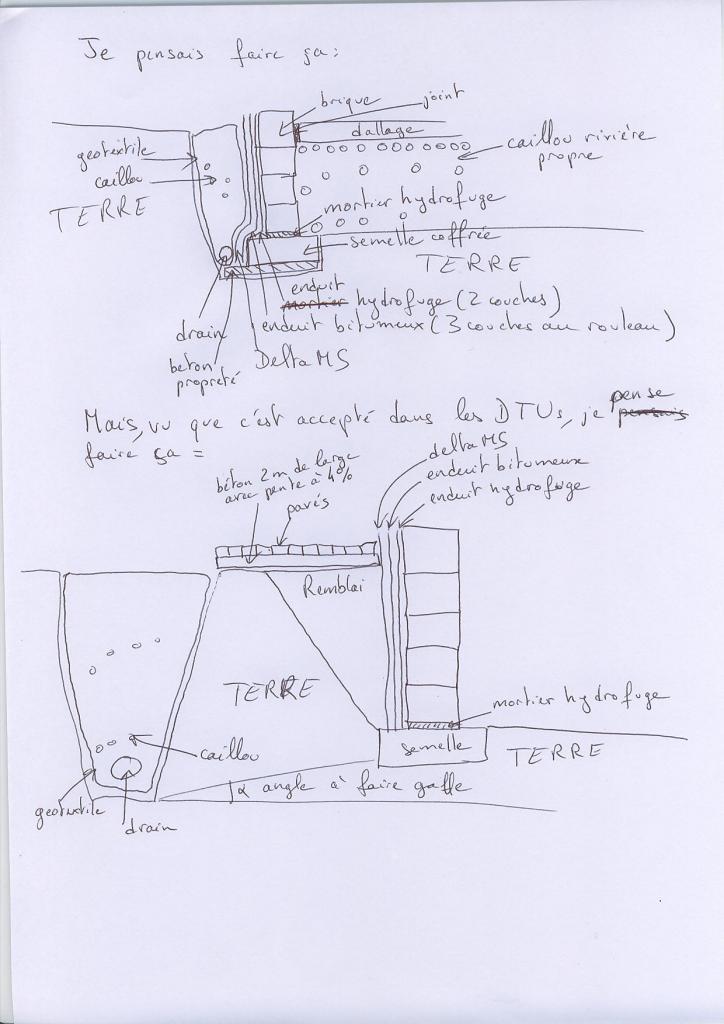 Je pensais faire ça:
brique
joint
dallage
geotextile
caillou
TERRE
caillou rivière
propre
mortier hydrofuge
semelle coffrée
TERRE
enduit
mortier hydrofuge (2 couches)
drain
enduit bitumeux (3 couches au rouleau)
béton
propreté
Delta MS
Mais, vu que c'est accepté dans les DTUs, je pense pensais
faire ça =
béton 2m de large
avec pente à 4%
pavés
deltaMS
enduit bitumeux
enduit hydrofuge
Remblai
TERRE
mortier hydrofuge
caillou
semelle
TERRE
α angle à faire gaffe
geotextile
drain